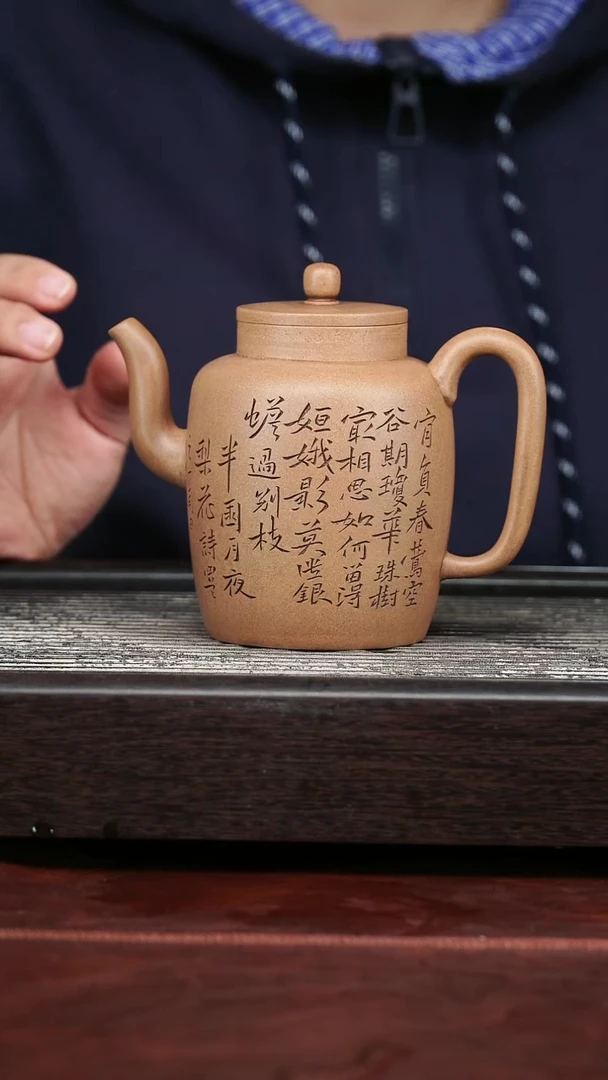 肯負春鶯空
谷期瓊華珠樹
冣相思如何留得
姮娥影莫銀
蟾過別枝
半園月夜
梨花詩